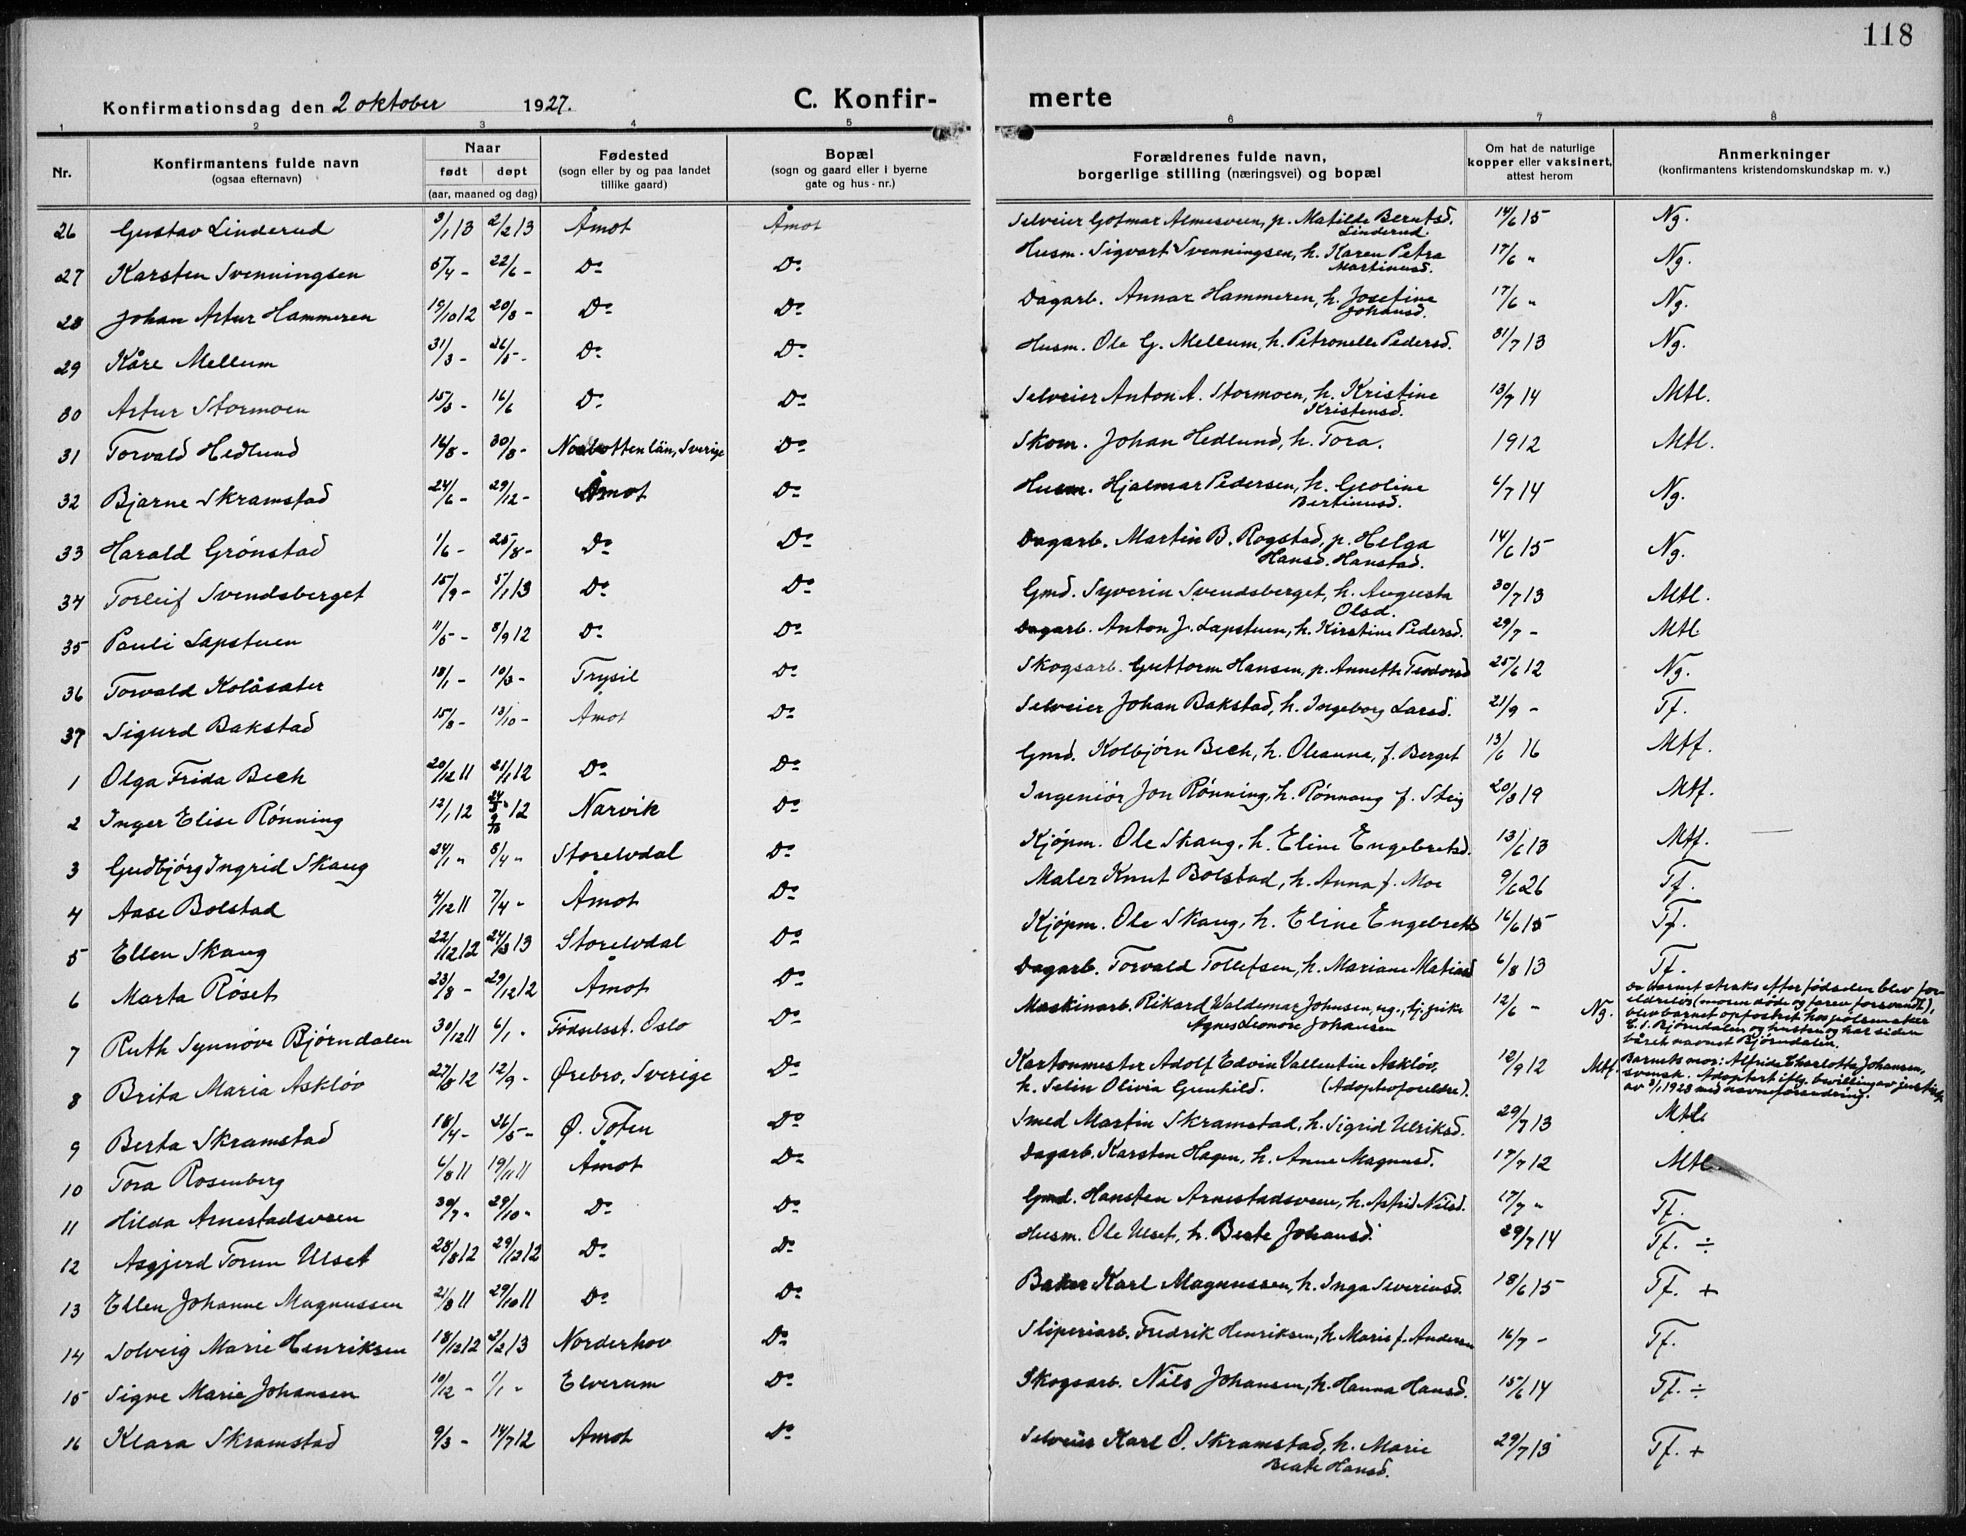 118
Konfirmationsdag den 2 oktober 1927. C. Konfir- merte
1 2 3 4 5 6 7 8
Nr. Konfirmantens fulde navn (ogsaa efternavn) Naar født døpt (aar, maaned og dag) Fødested (sogn eller by og paa landet tillike gaard) Bopæl (sogn og gaard eller i byerne gate og hus-nr.) Forældrenes fulde navn, borgerlige stilling (næringsvei) og bopæl Om hat de naturlige kopper eller vaksinert, attest herom Anmerkninger (konfirmantens kristendomskundskap m. v.)
26 Gustav Linderud 3/1 13 2/2 13 Åmot Åmot Selveier Gotmar Almesveen, p. Matilde Berntsd. Linderud. 14/6 15 Ng.
27 Karsten Svenningsen /4 - 22/6 - Do Do Husm. Sigvart Svenningsen, h. Karen Petra Martinusd. 17/6 " Ng.
28 Johan Artur Hammeren 19/10 12 20/8 - Do Do Dagarb. Annar Hammeren, h. Josefine Johansd. 17/6 " Ng.
29 Kåre Mellum 31/3 - 26/5 - Do Do Husm. Ole G. Mellum, h. Petronelle Pedersd. 31/7 13 Ng.
30 Artur Stormoen 15/3 - 16/6 Do Do Selveier Anton A. Stormoen, h. Kristine Kristensd. 13/7 14 Mtl.
31 Torvald Hedlund 16/8 - 30/8 - Norbottenlän, Sverige Do Skom. Johan Hedlund, h. Tora. 1912 Mtl.
32 Bjarne Skramstad 24/6 - 29/12 - Åmot Do Husm. Hjalmar Pedersen, h. Geoline Bertinusd. 6/7 14 Ng.
33 Harald Grønstad 1/6 - 25/8 - Do Do Dagarb. Martin B. Rogstad, p. Helga Hansd. Hanstad. 14/6 15 Ng.
34 Torleif Svendsberget 15/9 - 5/1 13 Do Do Gmd. Syverin Svendsberget, h. Augusta Olsd. 30/7 13 Mtl.
35 Pauli Lapstuen 11/5 - 8/9 12 Do Do Dagarb. Anton J. Lapstuen, h. Kirstine Pedersd. 29/7 - Mtl
36 Torvald Kolåsæter 18/1 - 10/3 - Trysil Do Skogsarb. Guttorm Hansen, p. Annette Teodorsd 25/6 12 Ng.
37 Sigurd Bakstad 15/8 - 13/10 - Åmot Do Selveier Johan Bakstad, h. Ingeborg Larsd. 21/9 - Tf.
1 Olga Frida Bech 20/12 11 21/1 12 Do Do Gmd. Kolbjørn Bech, h. Oleanna, f. Berget 13/6 16 Mtf.
2 Inger Elise Rønning 12/1 12 24/3 12 Narvik Do Ingeniør Jon Rønning, h. Rønnaug f. Steig 20/8 19 Mtf.
3 Gudbjørg Ingrid Skaug 24/1 " 8/4 " Storelvdal Do Kjøpm. Ole Skaug, h. Eline Engebretsd. 13/6 13 Mtf.
4 Aase Bolstad 4/12 11 7/4 - Åmot Do Maler Knut Bolstad, h. Anna f. Moe 9/6 26 Tf.
5 Ellen Skaug 22/12 12 24/3 13 Storelvdal Do Kjøpm. Ole Skaug, h. Eline Engebretsd 16/6 15 Tf.
6 Marta Røset 23/8 - 29/12 12 Åmot Do Dagarb. Torvald Tollefsen, h. Mariane Matiasd 6/8 13 Tf.
7 Ruth Synnøve Bjørndalen 30/12 11 6/1 - Fødselsst. Oslo Do Maskinarb. Rikard Waldemar Johnsen, ug., hj.pike Agnes Leonore Johansen 12/6 - Ng. Da barnet straks efter fødselen blev foreldreløs (moren døde og faren forsvandt), blev barnet opfostret hos pølsemaker E. S. Bjørndalen og hustru og har siden båret navnet Bjørndalen.
8 Brita Maria Askløv 27/8 12 12/9 - Ørebro, Sverige Do Kartonmester Adolf Edvin Vallentin Askløv, h. Selin Olivia Gunhild. (Adoptivforeldre). 12/9 12 Mtf. Barnets mor: Alfrida Charlotta Johansen, svensk. Adoptert iflg. bevilling av justisdp. av 3/1 1928 med navneforandring.
9 Berta Skramstad 18/4 - 26/5 - Ø. Toten Do Smed Martin Skramstad, h. Sigrid Ulriksd. 29/7 13 Mtl.
10 Tora Rosenberg 6/8 11 19/11 11 Åmot Do Dagarb. Karsten Hagen, h. Anne Magnusd. 17/7 12 Mtl.
11 Hilda Arnestadsveen 30/7 - 29/10 - Do Do Gmd. Hansten Arnestadsveen, h. Astrid Nilsd. 17/7 " Tf.
12 Asgjerd Torun Ulset 28/8 12 29/12 12 Do Do Husm. Ole Ulset, h. Beate Johansd. 29/7 14 Tf. ÷
13 Ellen Johanne Magnussen 21/8 11 29/10 11 Do Do Baker Karl Magnussen, h. Inga Severinsd. 18/6 15 Tf. +
14 Solveig Marie Henriksen 18/12 12 2/2 13 Norderhov Do Sliperiarb. Fredrik Henriksen, h. Marie f. Andersen 16/7 - Tf.
15 Signe Marie Johansen 10/12 - 1/1 - Elverum Do Skogsarb. Nils Johansen, h. Hanna Hansd. 15/6 14 Tf. ÷
16 Klara Skramstad 9/3 - 14/7 12 Åmot Do Selveier Karl O. Skramstad, h. Marie Beate Hansd. 29/7 13 Tf. +